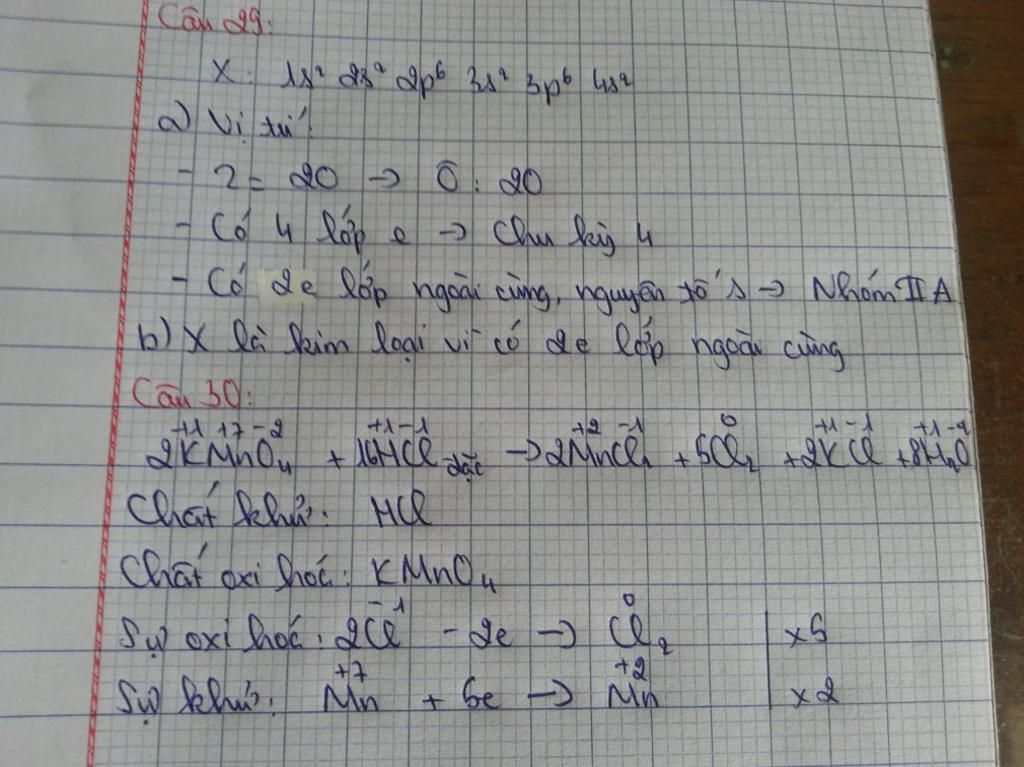 Câu 29:
X: 1s² 2s² 2p⁶ 3s² 3p⁶ 4s²
a) Vị trí:
- Z = 20 → Ô: 20
- Có 4 lớp e → Chu kỳ 4
- Có 2e lớp ngoài cùng, nguyên tố s → Nhóm II A
b) X là kim loại vì có 2e lớp ngoài cùng
Câu 30:
+1 +7 -2 +1 -1 +2 -1 0 +1 -1 +1 -2
2KMnO₄ + 16HCl đặc → 2MnCl₂ + 5Cl₂ + 2KCl + 8H₂O
Chất khử: HCl
Chất oxi hoá: KMnO₄
-1 0
Sự oxi hoá: 2Cl - 2e → Cl₂ | x5
+7 +2
Sự khử: Mn + 5e → Mn | x2